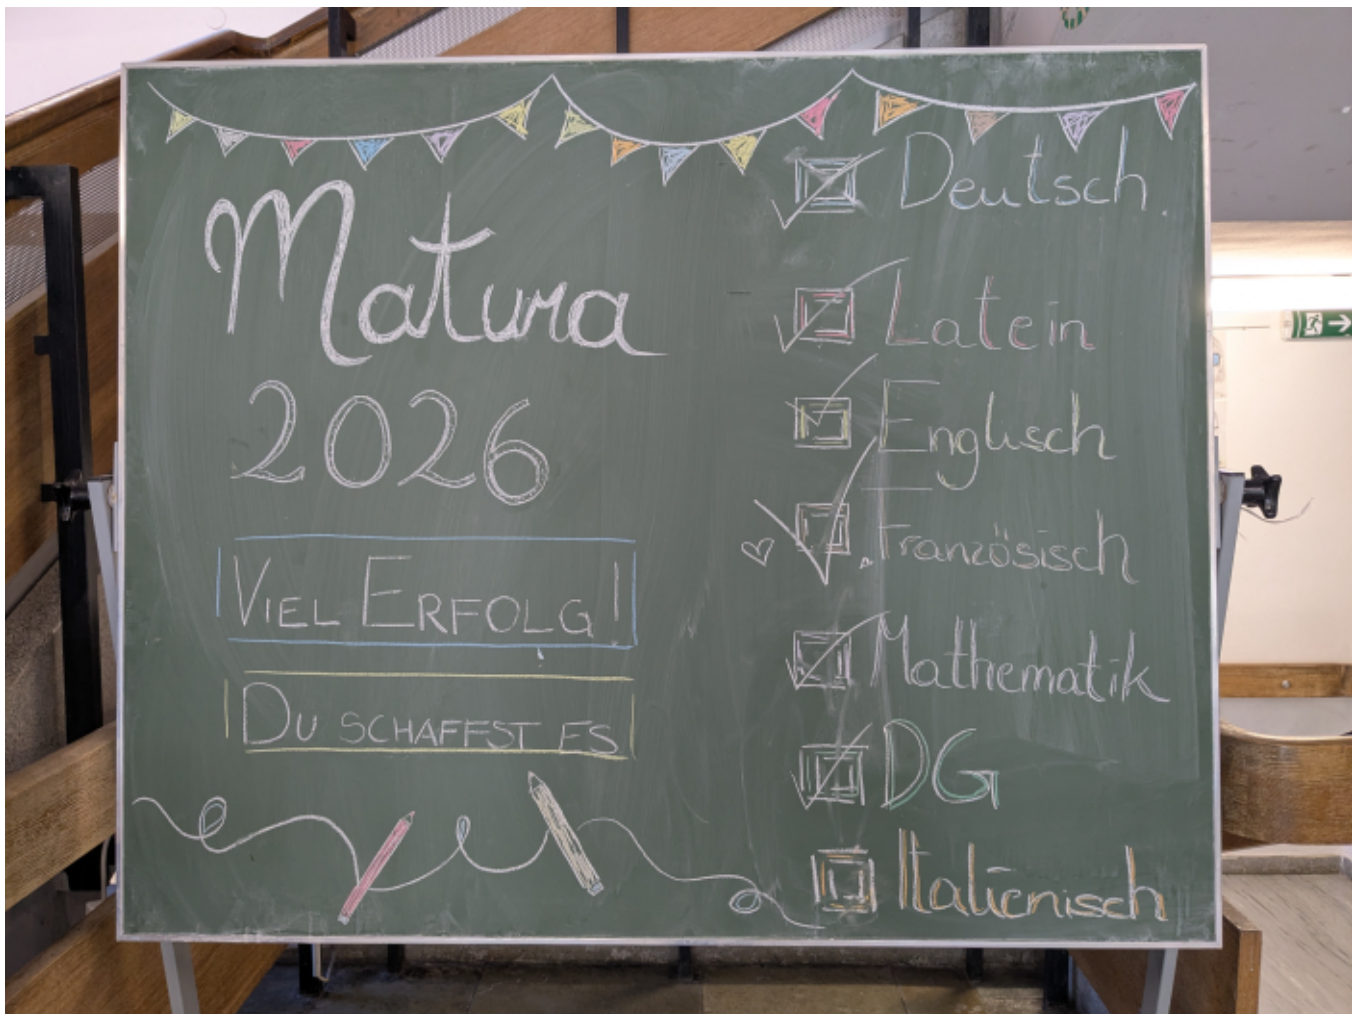 Matura
2026
VIEL ERFOLG!
DU SCHAFFST ES
Deutsch
Latein
Englisch
Französisch
Mathematik
DG
Italienisch